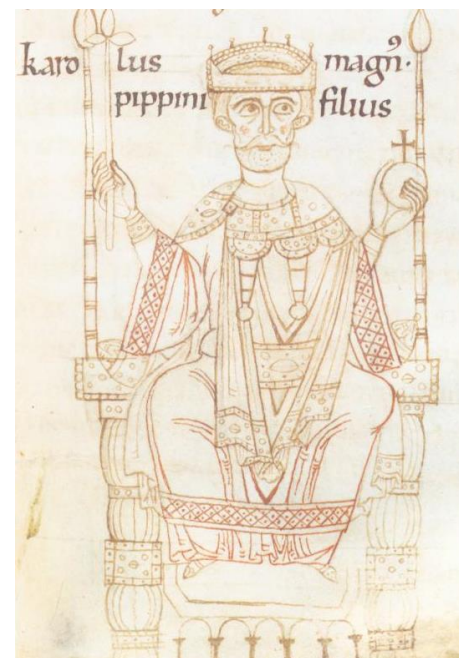 karolus magn̄⁹·
pippini filius